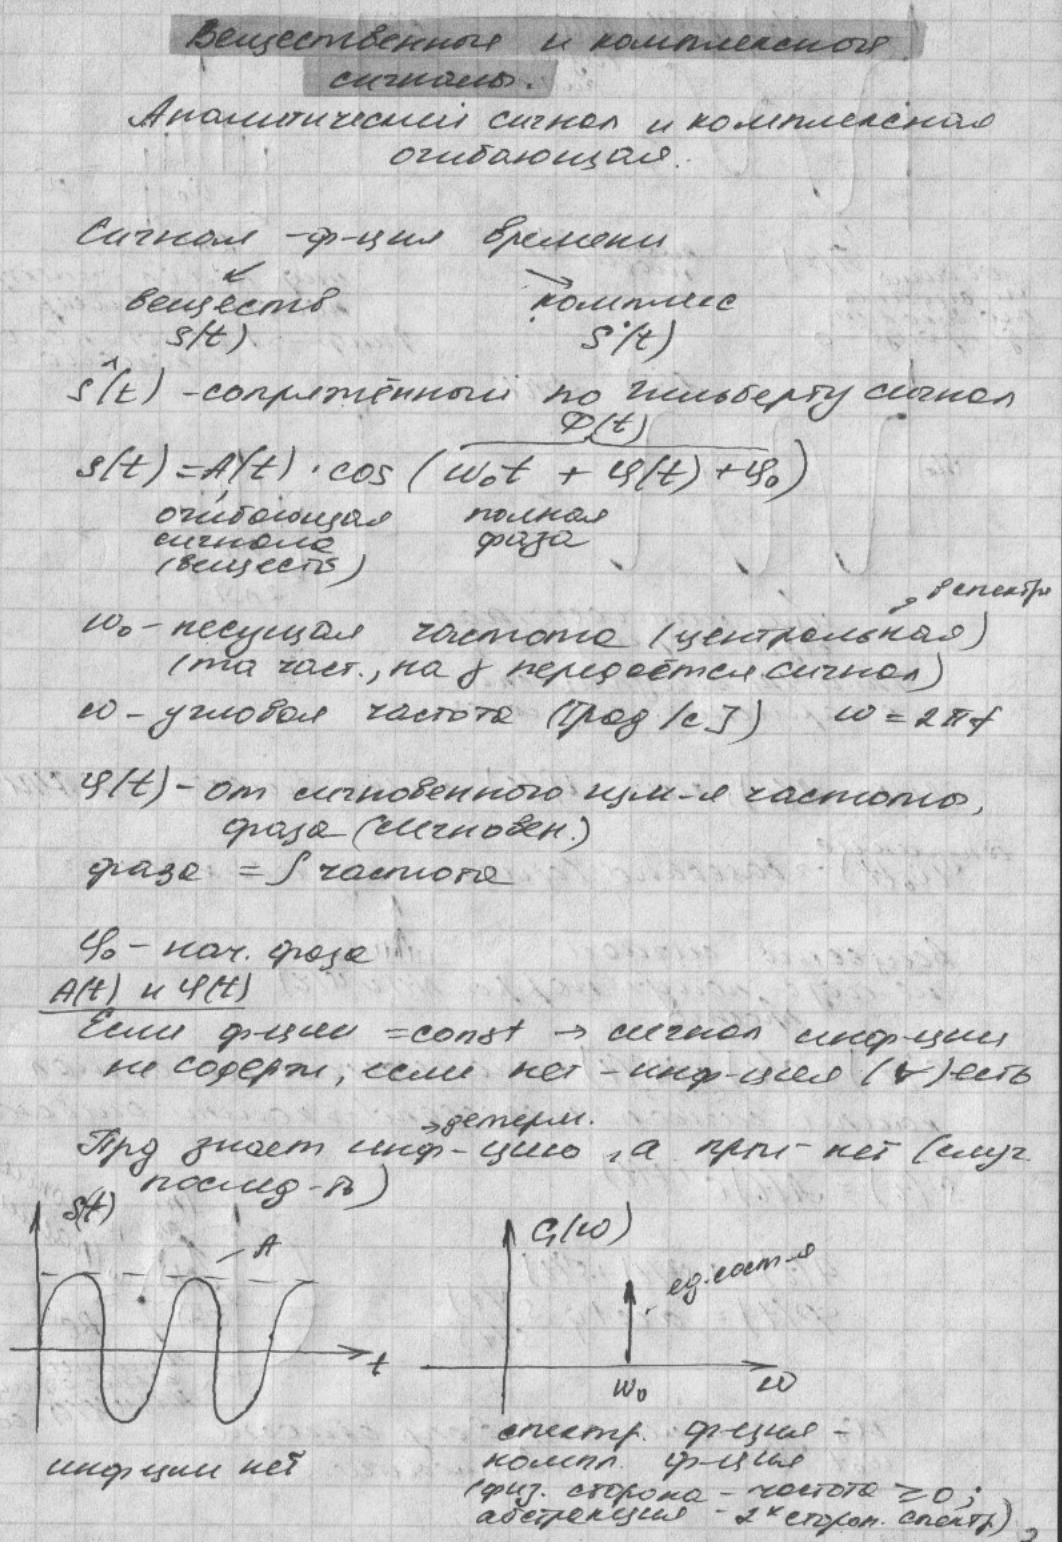 Вещественные и комплексные
сигналы.
Аналитический сигнал и комплексная
огибающая.
Сигнал - ф-ция времени
веществ комплекс
S(t) Ṡ(t)
Ŝ(t) - сопряжённый по Гильберту сигнал
Φ(t)
S(t) = A(t) · cos (ω₀t + φ(t) + φ₀)
огибающая полная
сигнала фаза
(веществ)
в спектре
ω₀ - несущая частота (центральная)
(та част., на к передаётся сигнал)
ω - угловая частота [рад/с] ω = 2πf
φ(t) - от мгновенного изм-я частоты,
фаза (мгновен.)
фаза = ∫ частота
φ₀ - нач. фаза
A(t) и φ(t)
Если ф-ции = const → сигнал инф-ции
не содерж, если нет - инф-ция (∀) есть
→ детерм.
Прд знает инф-цию, а прм - нет (случ.
послед-ть)
S(t)
A
t
G(ω)
ед. сост-я
ω₀ ω
инф ции нет
спектр. ф-ция -
компл. ф-ция
(физ. сторона - частота ≥ 0;
абстракция - 2х сторон. спектр)